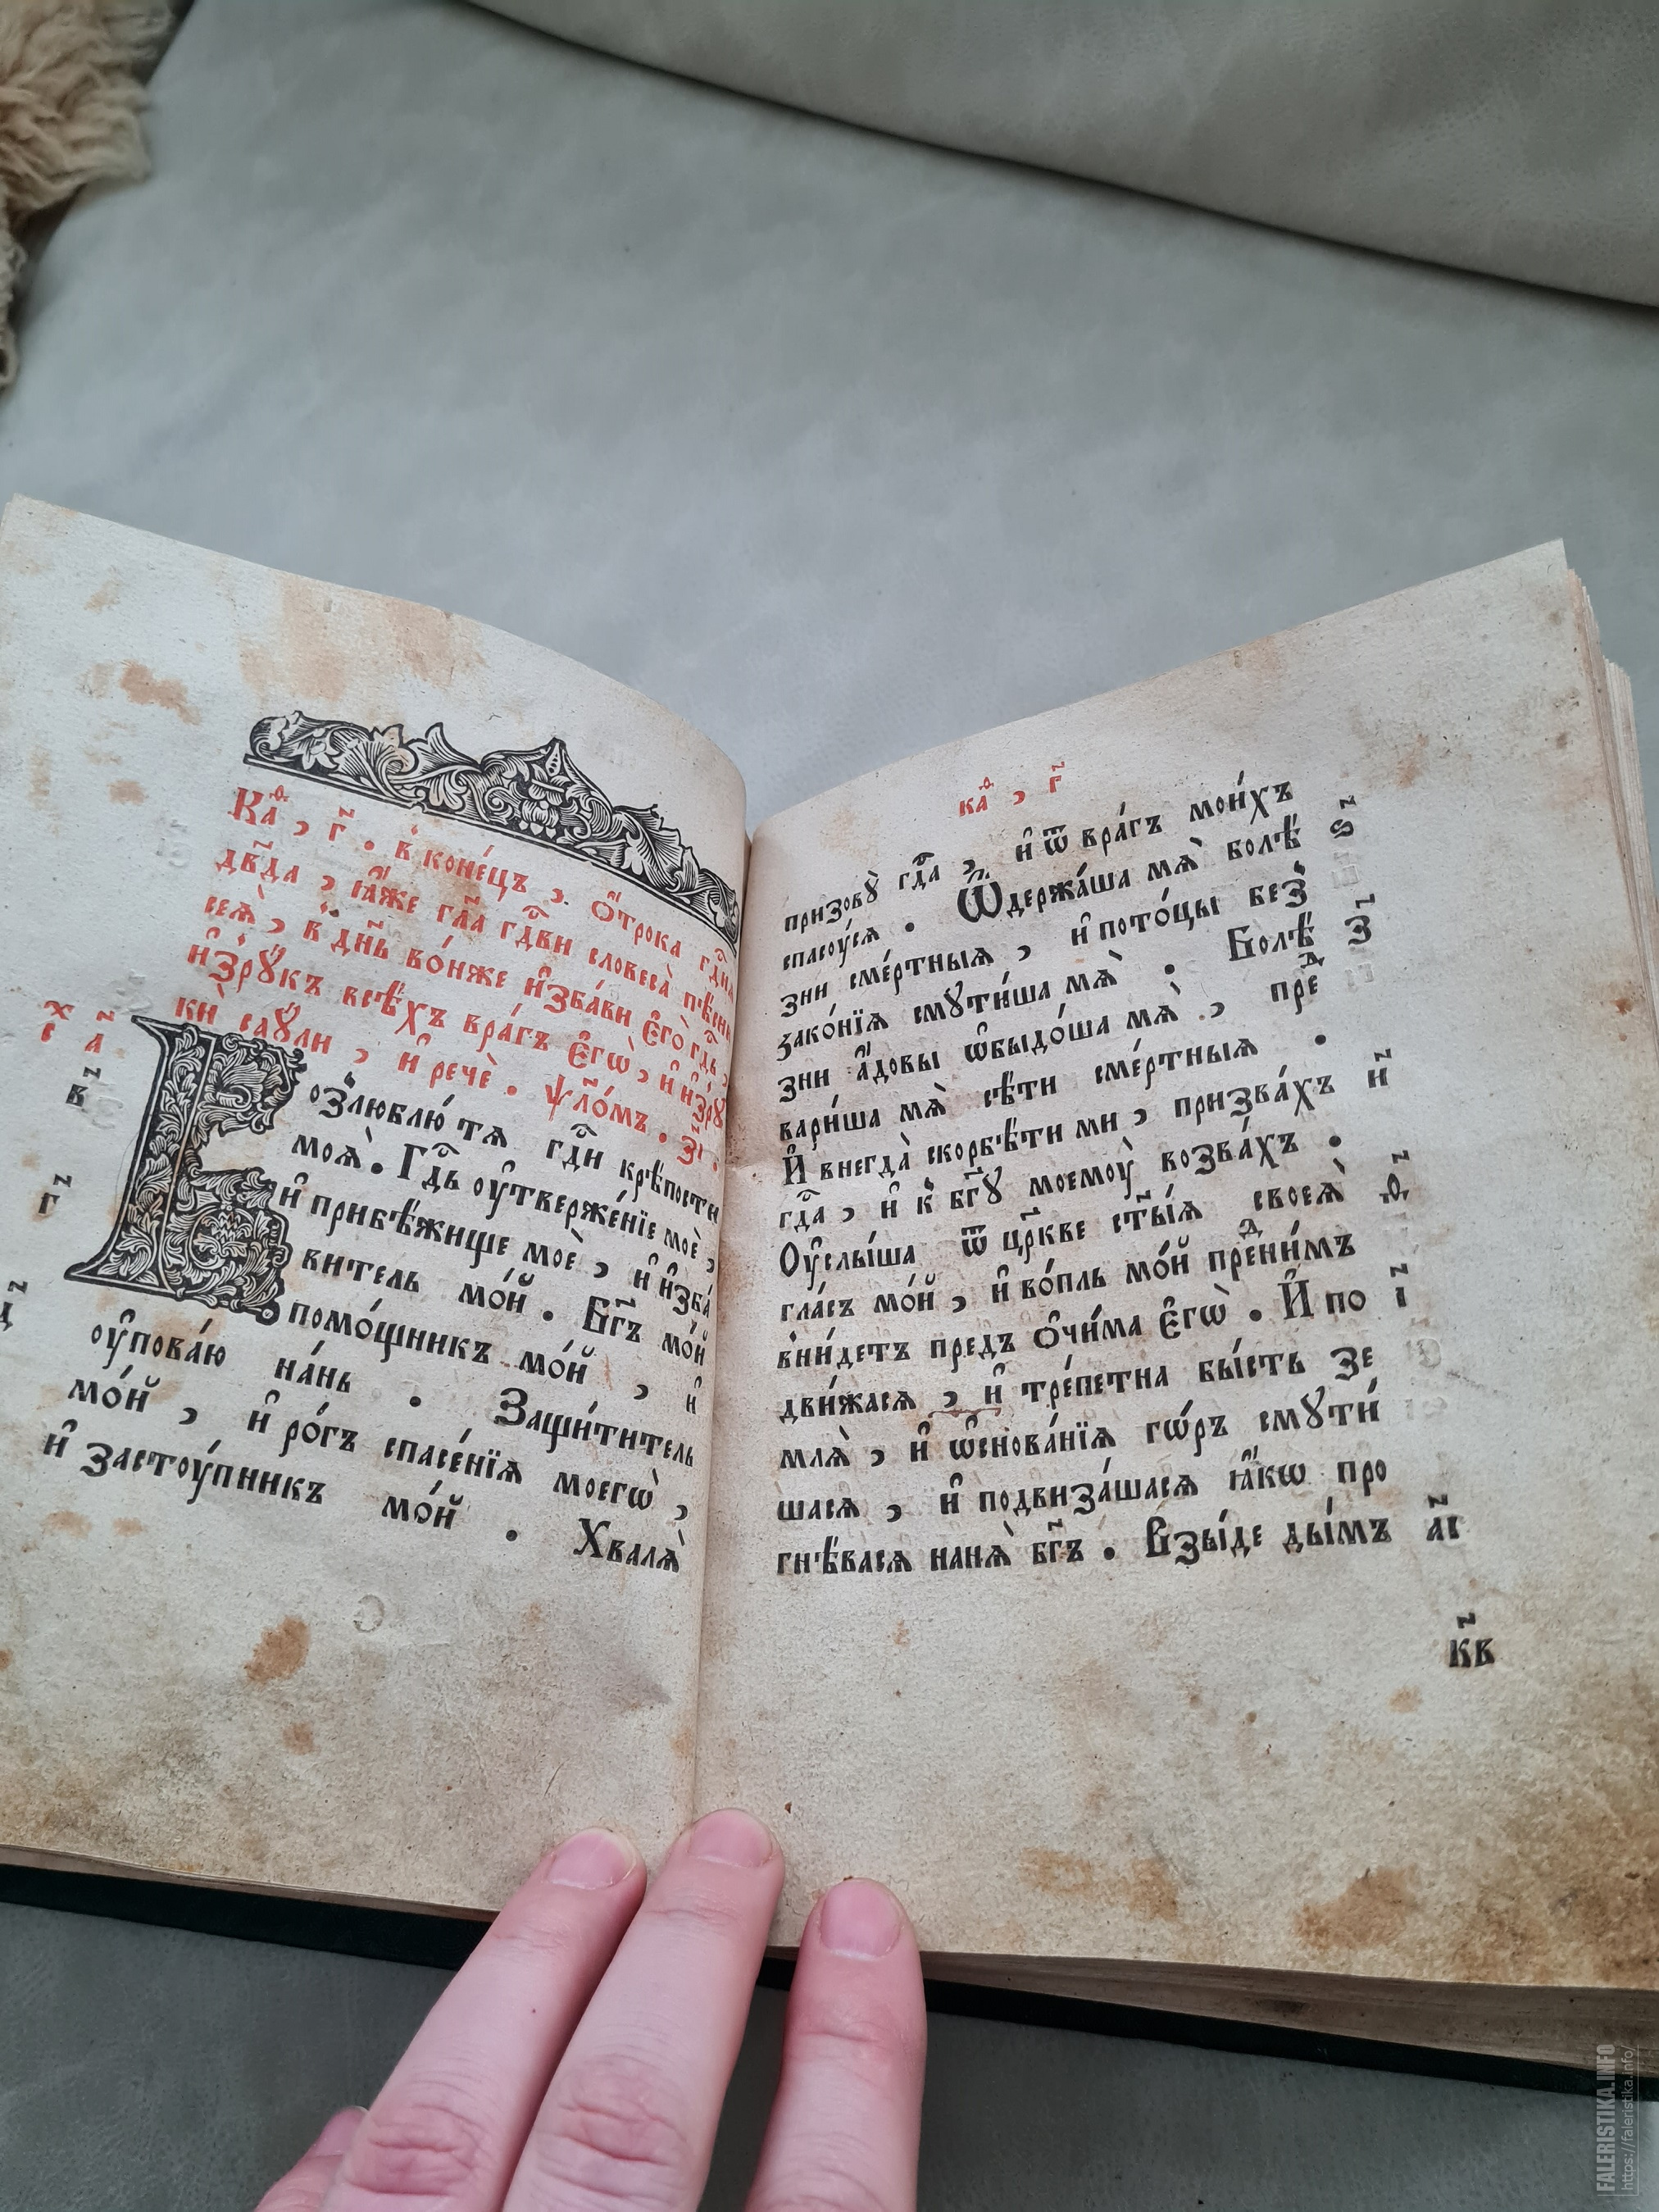 Каѳ҇ , г҃ . в҆ коне́цъ , ѻ҆́трока гд҇ня
дв҃да , ꙗ҆́же гл҃а гд҇ви словеса̀ пѣ́сни
сея̀ , в҆ дн҃ь во́нже и҆зба́ви є҆го̀ гд҇ь ,
и҆з̾рꙋ́къ всѣ́хъ вра́гъ є҆гѡ̀ , и҆ и҆з̾рꙋ
кѝ саꙋ́ли , и҆ речѐ . ѱло́мъ . з҃і .
Возлюблю́ тя гд҇и крѣ́пости
моя̀ . Гд҇ь оу҆твержде́нїе моѐ ,
и҆ прибѣ́жище моѐ , и҆ и҆зба́
витель мо́й . Бг҃ъ мо́й
помо́щникъ мо́й , и҆
оу҆пова́ю на́нь . Защи́титель
мо́й , и҆ ро́гъ спасе́нїя моегѡ̀ ,
и҆ застоу́пникъ мо́й . Хваля̀
х҇с а҃
в҃
г҃
д҃
каѳ҇ , г҃
призовꙋ̀ гд҇а , и҆ ѿ вра́гъ мои́хъ
спасоу́ся . Ѡ҆держа́ша мя̀ болѣ́ ѕ҃
зни сме́ртныя , и҆ пото́цы без̾
зако́нїя смꙋти́ша мя̀ . Болѣ́ з҃
зни а҆́довы ѡ҆быдо́ша мя̀ , преⷣ
вари́ша мя̀ сѣ́ти сме́ртныя .
И҆ внегда̀ скорбѣ́ти ми , призва́хъ и҃
гд҇а , и҆ к̾ бг҃ꙋ моемоу̀ возва́хъ .
Оу҆слы́ша ѿ цр҃кве ст҃ы́я своея̀ ѳ҃
гла́съ мо́й , и҆ во́пль мо́й преⷣни́мъ
вни́детъ предъ ѻ҆чи́ма є҆гѡ̀ . И҆ по і҃
дви́жася , и҆ тре́петна бы́сть зе
мля̀ , и҆ ѡ҆снова́нїя гѡ́ръ смꙋти́
шася , и҆ подвиза́шася ꙗ҆́кѡ про
гнѣ́вася наня̀ бг҃ъ . Взы́де ды́мъ а҃і
к҃в
FALERISTIKA.INFO
https://faleristika.info/